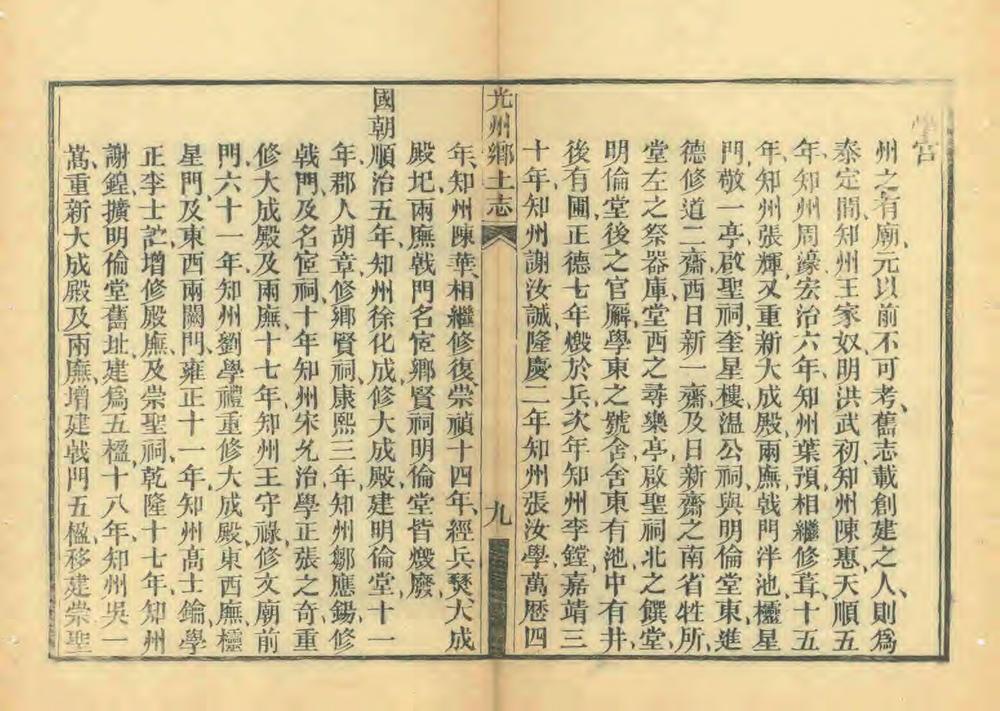 學宮
州之有廟元以前不可考舊志載創建之人則爲
泰定間知州王家奴明洪武初知州陳惠天順五
年知州周濠宏治六年知州葉預相繼修葺十五
年知州張輝又重新大成殿兩廡戟門泮池櫺星
門敬一亭啟聖祠奎星樓溫公祠與明倫堂東進
德修道二齋西日新一齋及日新齋之南省牲所
堂左之祭器庫堂西之尋樂亭啟聖祠北之饌堂
明倫堂後之官廨學東之號舍舍東有池中有井
後有圃正德七年燬於兵次年知州李鏜嘉靖三
十年知州謝汝誠隆慶二年知州張汝學萬曆四
光州鄉土志
九
年知州陳華相繼修復崇禎十四年經兵燹大成
殿圮兩廡戟門名宦鄉賢祠明倫堂皆燬廢
國朝順治五年知州徐化成修大成殿建明倫堂十一
年郡人胡章修鄉賢祠康熙三年知州鄒應錫修
戟門及名宦祠十年知州宋允治學正張之奇重
修大成殿及兩廡十七年知州王守祿修文廟前
門六十一年知州劉學禮重修大成殿東西廡櫺
星門及東西兩闕門雍正十一年知州高士鑰學
正李士訨增修殿廡及崇聖祠乾隆十七年知州
謝鍠擴明倫堂舊址建爲五楹十八年知州吳一
嵩重新大成殿及兩廡增建戟門五楹移建崇聖